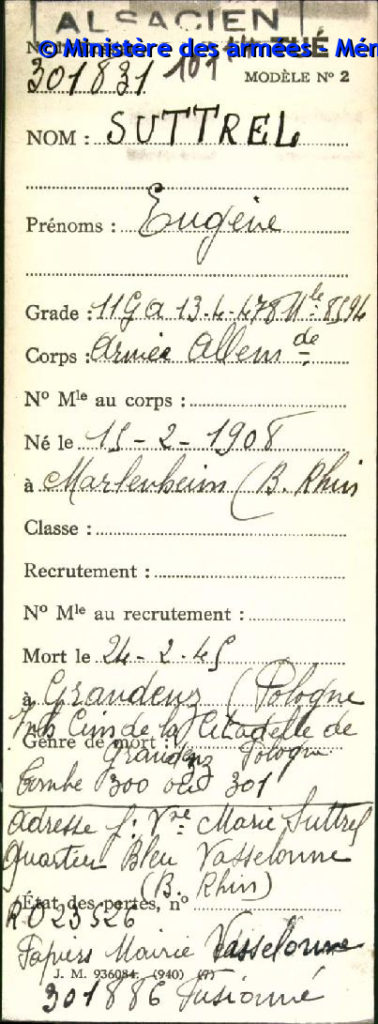 ALSACIEN
© Ministère des armées - Mém
TUÉ
301831 101 MODÈLE N° 2
NOM : SUTTREL
Prénoms : Eugène
Grade : 11 G a 13.4.478 Mle : 8594
Corps : Armée Allemde
N° Mle au corps :
Né le 15 - 2 - 1908
à Marlenheim (B. Rhin
Classe :
Recrutement :
N° Mle au recrutement :
Mort le 24 - 2 - 45
à Graudenz (Pologne
Cim de la Citadelle de
Genre de mort : Graudenz Pologne
Tombe 300 ou 301
adresse f : Vve Marie Suttrel
Quartier Bleu Vasselonne
(B. Rhin)
État des pertes, n°
RO 23526
Papiers Mairie Vasselonne
J. M. 936084. (940) (7)
301886 Fusionné